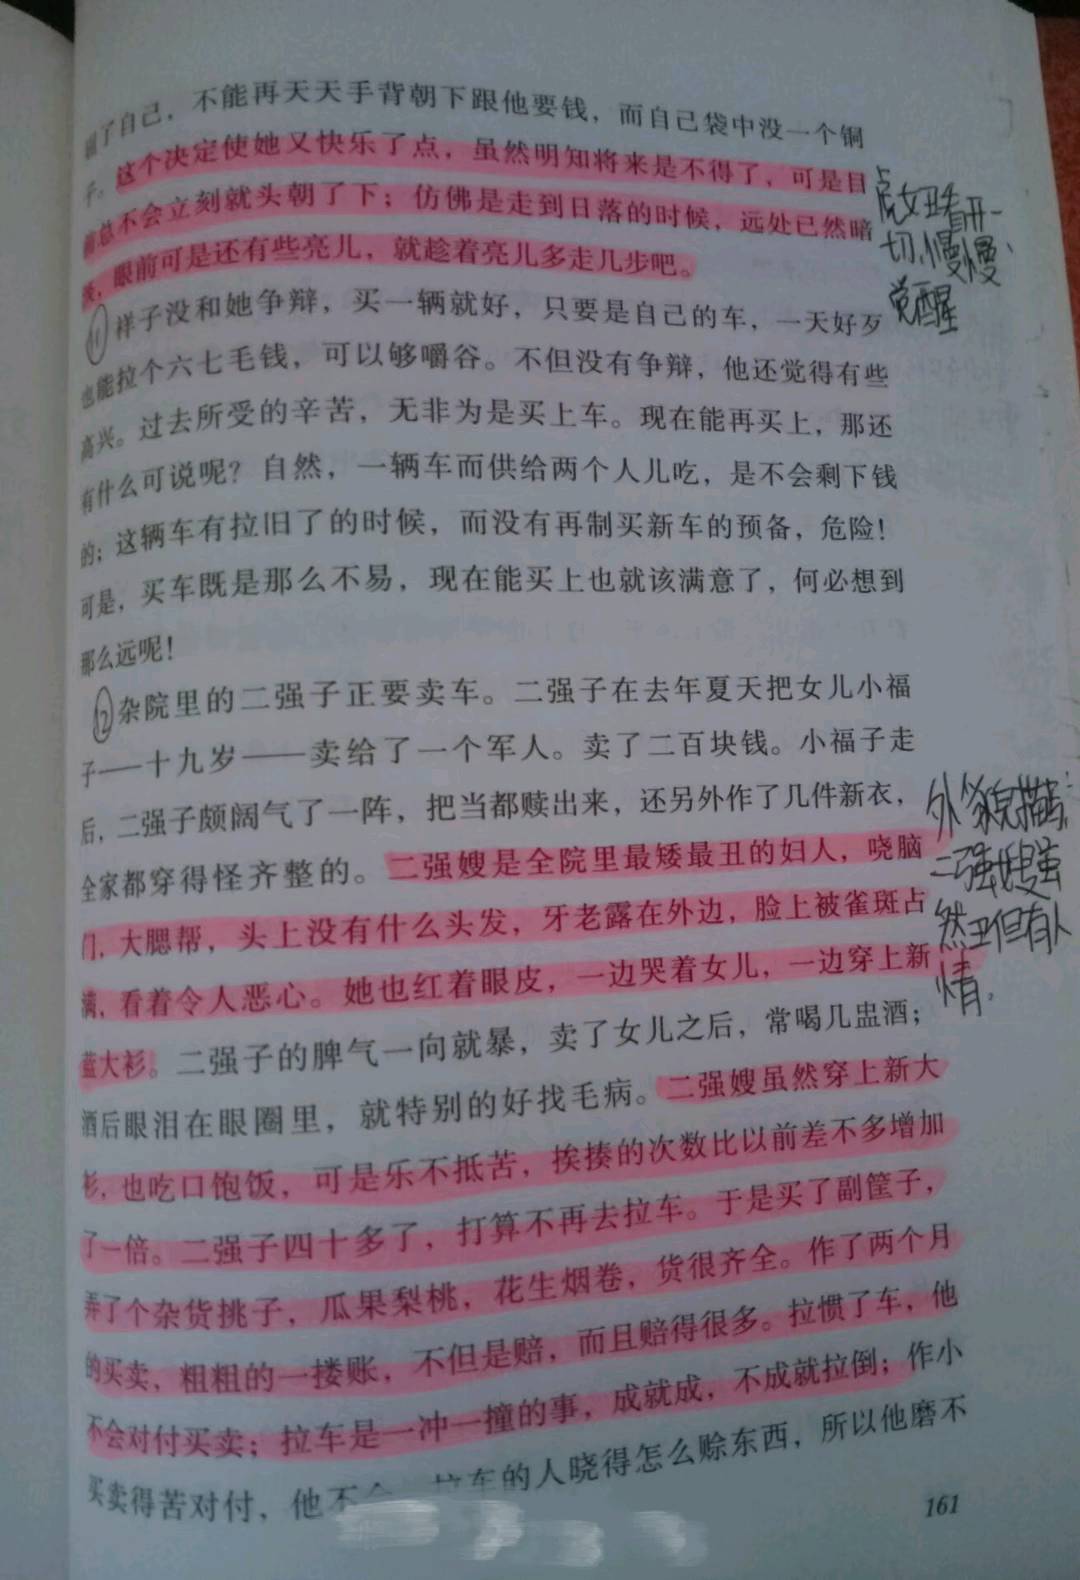 了自己，不能再天天手背朝下跟他要钱，而自己袋中没一个铜
子。这个决定使她又快乐了点，虽然明知将来是不得了，可是目
总不会立刻就头朝了下；仿佛是走到日落的时候，远处已然暗
，眼前可是还有些亮儿，就趁着亮儿多走几步吧。
虎女丑看开一
切,慢慢
觉醒
11 祥子没和她争辩，买一辆就好，只要是自己的车，一天好歹
也能拉个六七毛钱，可以够嚼谷。不但没有争辩，他还觉得有些
高兴。过去所受的辛苦，无非为是买上车。现在能再买上，那还
有什么可说呢？自然，一辆车而供给两个人儿吃，是不会剩下钱
的；这辆车有拉旧了的时候，而没有再制买新车的预备，危险！
可是，买车既是那么不易，现在能买上也就该满意了，何必想到
那么远呢！
12 杂院里的二强子正要卖车。二强子在去年夏天把女儿小福
子——十九岁——卖给了一个军人。卖了二百块钱。小福子走
后，二强子颇阔气了一阵，把当都赎出来，还另外作了几件新衣，
全家都穿得怪齐整的。二强嫂是全院里最矮最丑的妇人，哓脑
门，大腮帮，头上没有什么头发，牙老露在外边，脸上被雀斑占
满，看着令人恶心。她也红着眼皮，一边哭着女儿，一边穿上新
蓝大衫。二强子的脾气一向就暴，卖了女儿之后，常喝几盅酒；
酒后眼泪在眼圈里，就特别的好找毛病。二强嫂虽然穿上新大
衫，也吃口饱饭，可是乐不抵苦，挨揍的次数比以前差不多增加
了一倍。二强子四十多了，打算不再去拉车。于是买了副筐子，
弄了个杂货挑子，瓜果梨桃，花生烟卷，货很齐全。作了两个月
的买卖，粗粗的一搂账，不但是赔，而且赔得很多。拉惯了车，他
不会对付买卖；拉车是一冲一撞的事，成就成，不成就拉倒；作小
买卖得苦对付，他不 拉车的人晓得怎么赊东西，所以他磨不
外貌描写
二强嫂虽
然丑但有人
情。
161